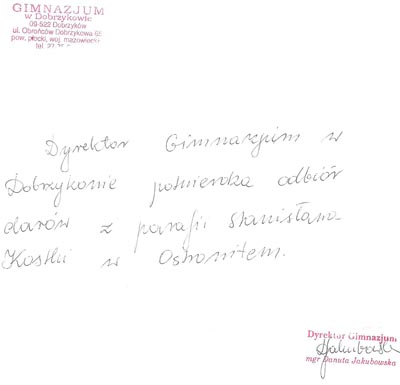 GIMNAZJUM
w Dobrzykowie
09-522 Dobrzyków
ul. Obrońców Dobrzykowa 65
pow. płocki, woj. mazowieckie
tel.
Dyrektor Gimnazjum w
Dobrzykowie potwierdza odbiór
darów z parafii Stanisława
Kostki w Ostrowitem.
Dyrektor Gimnazjum
mgr Danuta Jakubowska